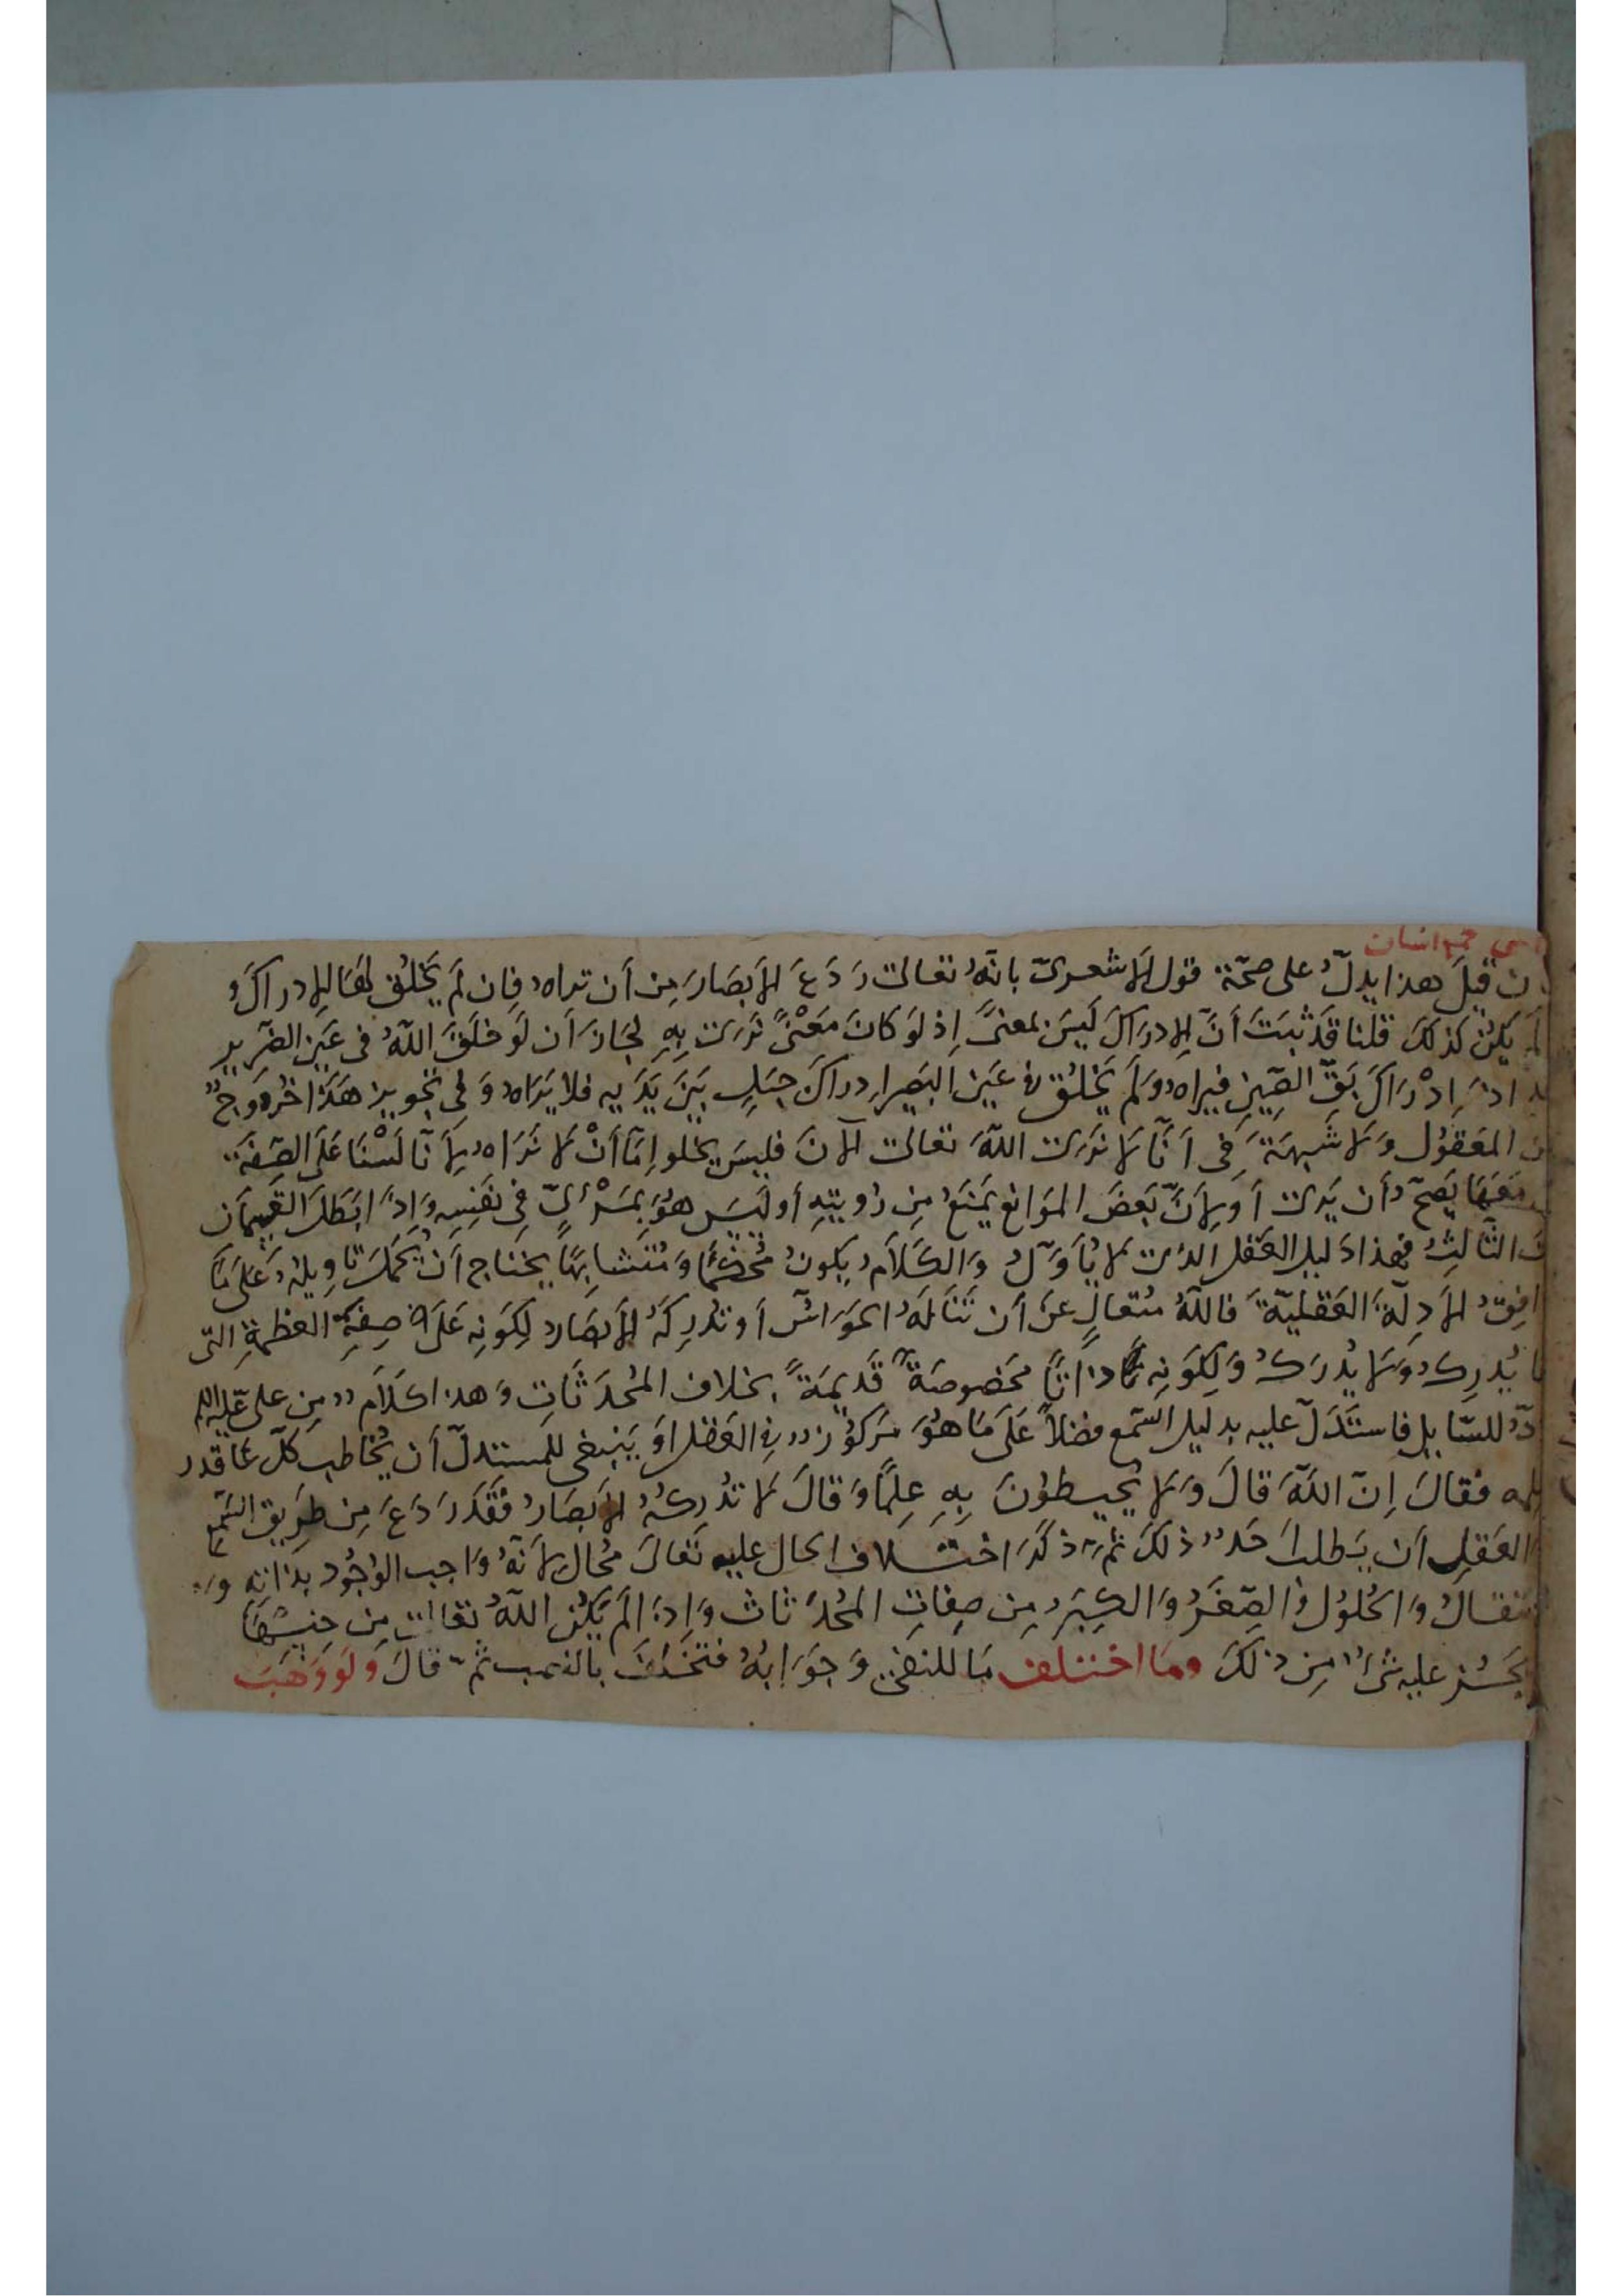 ن قيلَ هذا يدلّ على صحّة قول الأشعرىّ بانّهُ تعالىٰ رَدَعَ الأبصَارَ مِن أن تراه فإن لَم يَخلُق لهَا الإدراكَ
لَم يكُن كذلكَ قلنا قَد ثبَتَ أنّ الإدراكَ لَيسَ بمعنىً إذ لوَ كانَ مَعْنىً نَرَىٰ بِهِ لجَازَ أن لَو خلَقَ اللّهُ فى عَينِ الضّريرِ
إدْرَاكَ بَقّ الصّينِ فيراه ولَم يَخلُق فى عَينِ البَصيرِ إدراكَ جبَلٍ بَينَ يَدَيهِ فلا يَرَاه وَ فى تجويز هَذَا خُروجٌ
المَعقُول وَلا شُبهَةَ فِى أنّا لا نَرَىٰ اللّهَ تعالىٰ الآنَ فليسَ يخلو إمّا أنْ لا نَرَاه لأنّا لَسْنَا عَلَى الصّفَة
مَعَهَا يَصحّ أن يَرىٰ أو لِأنّ بَعضَ المَوَانِعِ يَمنَعُ مِن رؤيَتِهِ أو لَيسَ هُوَ بمَرْئىّ فِى نَفسِهِ وَإذَا بَطَلَ القِسمَان
الثّالِثُ فهذا دَليل العَقل الذى لا يُأوَّلُ وَالكَلَامُ يكونُ مُحكمًا وَمُتشَابِهًا يحتَاج أنْ يُحمَلَ تَأويلهُ عَلَى مَا
افِقُ الأدِلّةَ العَقليّةَ فاللّهُ مُتعالٍ عَن أن تَنَالَهُ الحَوَاسّ أو تُدرِكَهُ الأبصَار لِكَونِهِ عَلَى صِفَةِ العظمةِ التى
يُدرِك وَلا يُدرَكُ وَلِكَونِهِ ذاتًا مخصُوصَةً قَدِيمَةً بخلاف المُحدَثَاتِ وَهذا كلَام مِن على عليه السلم
للسّايل فاستَدَلّ عليه بدليل السّمع فضلاً عَلَى مَا هُوَ مَركُوز فِى العَقل اوَ يَنبغى للمستدلّ أن يُخاطب كلّ على قدر
فقالَ إنّ اللّهَ قالَ وَلا يُحِيطُونَ بِهِ عِلمًا وَقالَ لا تُدرِكُهُ الأبصَارُ فَقَد رَدَعَ مِن طَرِيق السّمعِ
العَقل أن يَطلبَ أحَدٌ ذلكَ ثُمّ ذكَرَ اختلاف الحال عليه تَعَالَىٰ مُحال لأنّهُ وَاجب الوُجُود بذاتِهِ و
وَالحُلولُ وَالصّغَرُ وَالكِبَرُ مِن صِفاتِ المُحدَثات وَإذا لَم يَكُنِ اللّهُ تعَالىٰ مِن جِنسِهَا
يَجُز عليه شىءٌ مِن ذلكَ وَمَا اختلفَ مَا للنفىِ وَجوَابُهُ فتختلفَ بالنصب ثمّ قالَ وَلو وَهَبَ